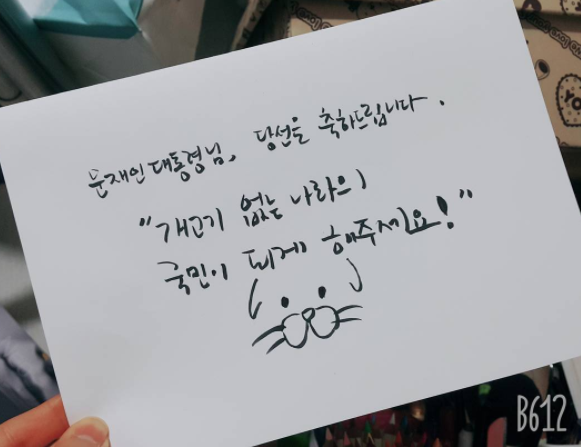 문재인 대통령님, 당선을 축하드립니다.
"개고기 없는 나라의
국민이 되게 해주세요!"
B612